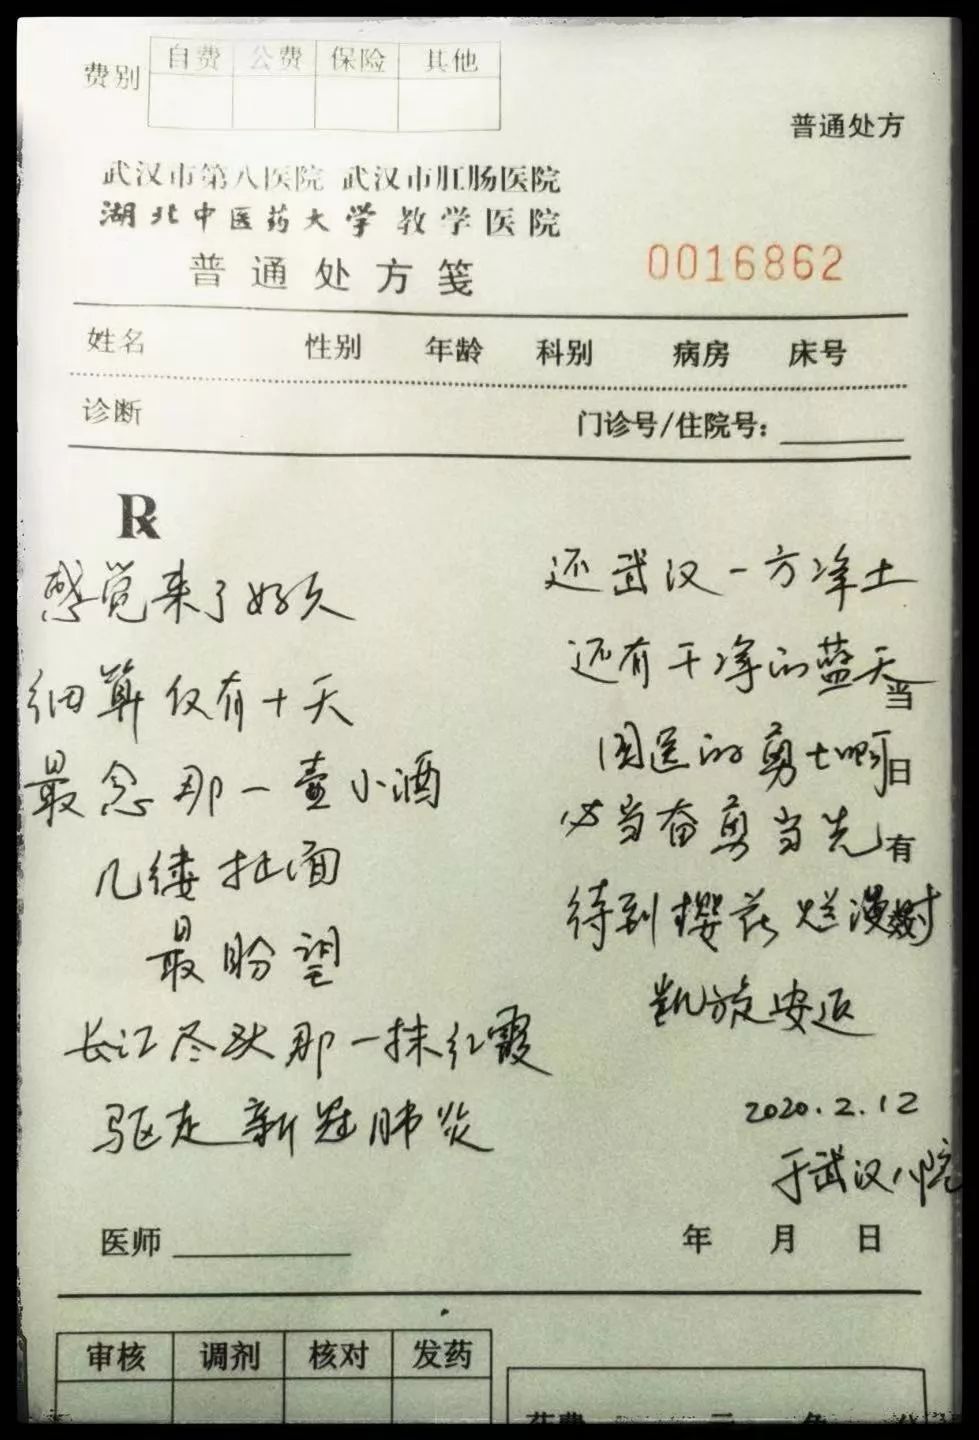 费别 自费 公费 保险 其他
普通处方
武汉市第八医院 武汉市肛肠医院
湖北中医药大学教学医院
普通处方笺
0016862
姓名 性别 年龄 科别 病房 床号
诊断 门诊号/住院号:
Rx
感觉来了好久
细算仅有十天
最念那一壶小酒
几缕扯面
最盼望
长江尽头那一抹红霞
驱走新冠肺炎
还武汉一方净土
还有干净的蓝天
国医的勇士啊
必当奋勇当先
待到樱花烂漫时
凯旋安返
2020.2.12
于武汉八院
当日有效
医师 年 月 日
审核 调剂 核对 发药
药费 元 角